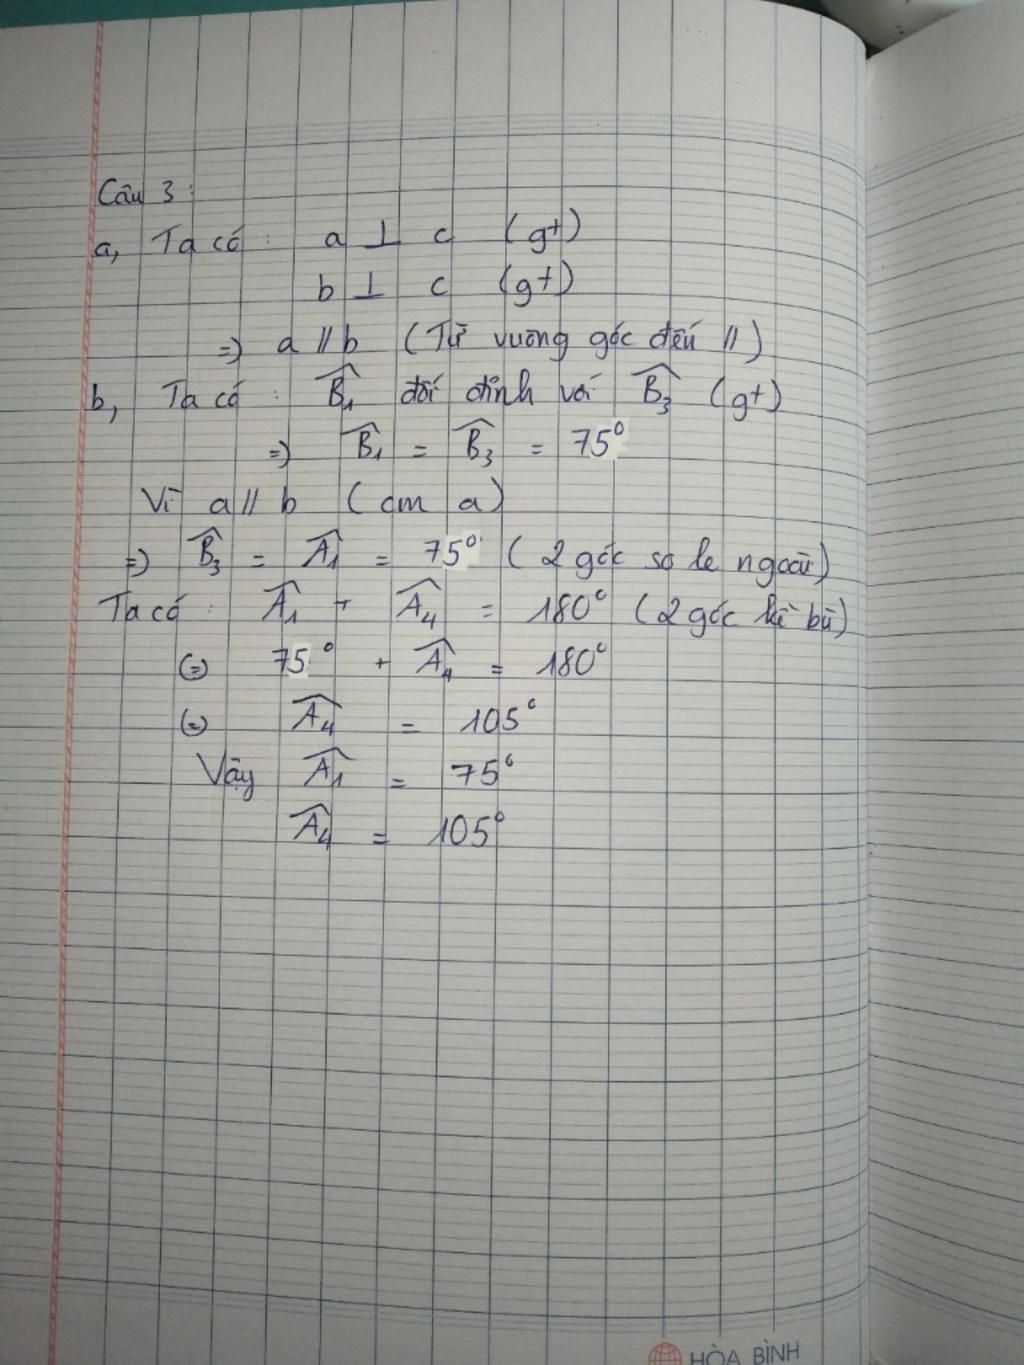 Câu 3 :
a, Ta có : a ⊥ c (gt)
b ⊥ c (gt)
=> a // b (Từ vuông góc đến //)
b, Ta có : B̂₁ đối đỉnh với B̂₃ (gt)
=> B̂₁ = B̂₃ = 75°
Vì a // b (cm a)
=> B̂₃ = Â₁ = 75° (2 góc so le ngoài)
Ta có : Â₁ + Â₄ = 180° (2 góc kề bù)
(=) 75° + Â₄ = 180°
(=) Â₄ = 105°
Vậy Â₁ = 75°
Â₄ = 105°
HÒA BÌNH